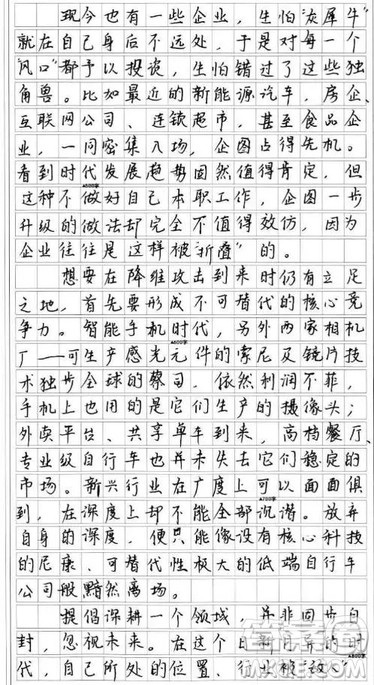 现今也有一些企业，生怕“灰犀牛”
就在自己身后不远处，于是对每一个
“风口”都予以投资，生怕错过了这些独
角兽。比如最近的新能源汽车，房企、
互联网公司、连锁超市，甚至食品企
业，一同密集入场，企图占得先机。
看到时代发展趋势固然值得肯定，但
A500字
这种不做好自己本职工作，企图一步
升级的做法却完全不值得效仿，因为
企业往往是这样被“折叠”的。
想要在降维攻击到来时仍有立足
之地，首先要形成不可替代的核心竞
争力。智能手机时代，另外两家相机
A600字
厂——可生产感光元件的索尼及镜片技
术独步全球的蔡司，依然利润不菲，
手机上也用的是它们生产的摄像头；
外卖平台、共享单车到来，高档餐厅、
专业级自行车也并未失去它们稳定的
市场。新兴行业在广度上可以面面俱
A700字
到，在深度上却不能全部沉潜。放弃
自身的深度，便只能像没有核心科技
的尼康、可替代性极大的低端自行车
公司般黯然离场。
提倡深耕一个领域，并非固步自
封，忽视未来。在这个日新月异的时
A800字
代，自己所处的位置、行业被“敌人”